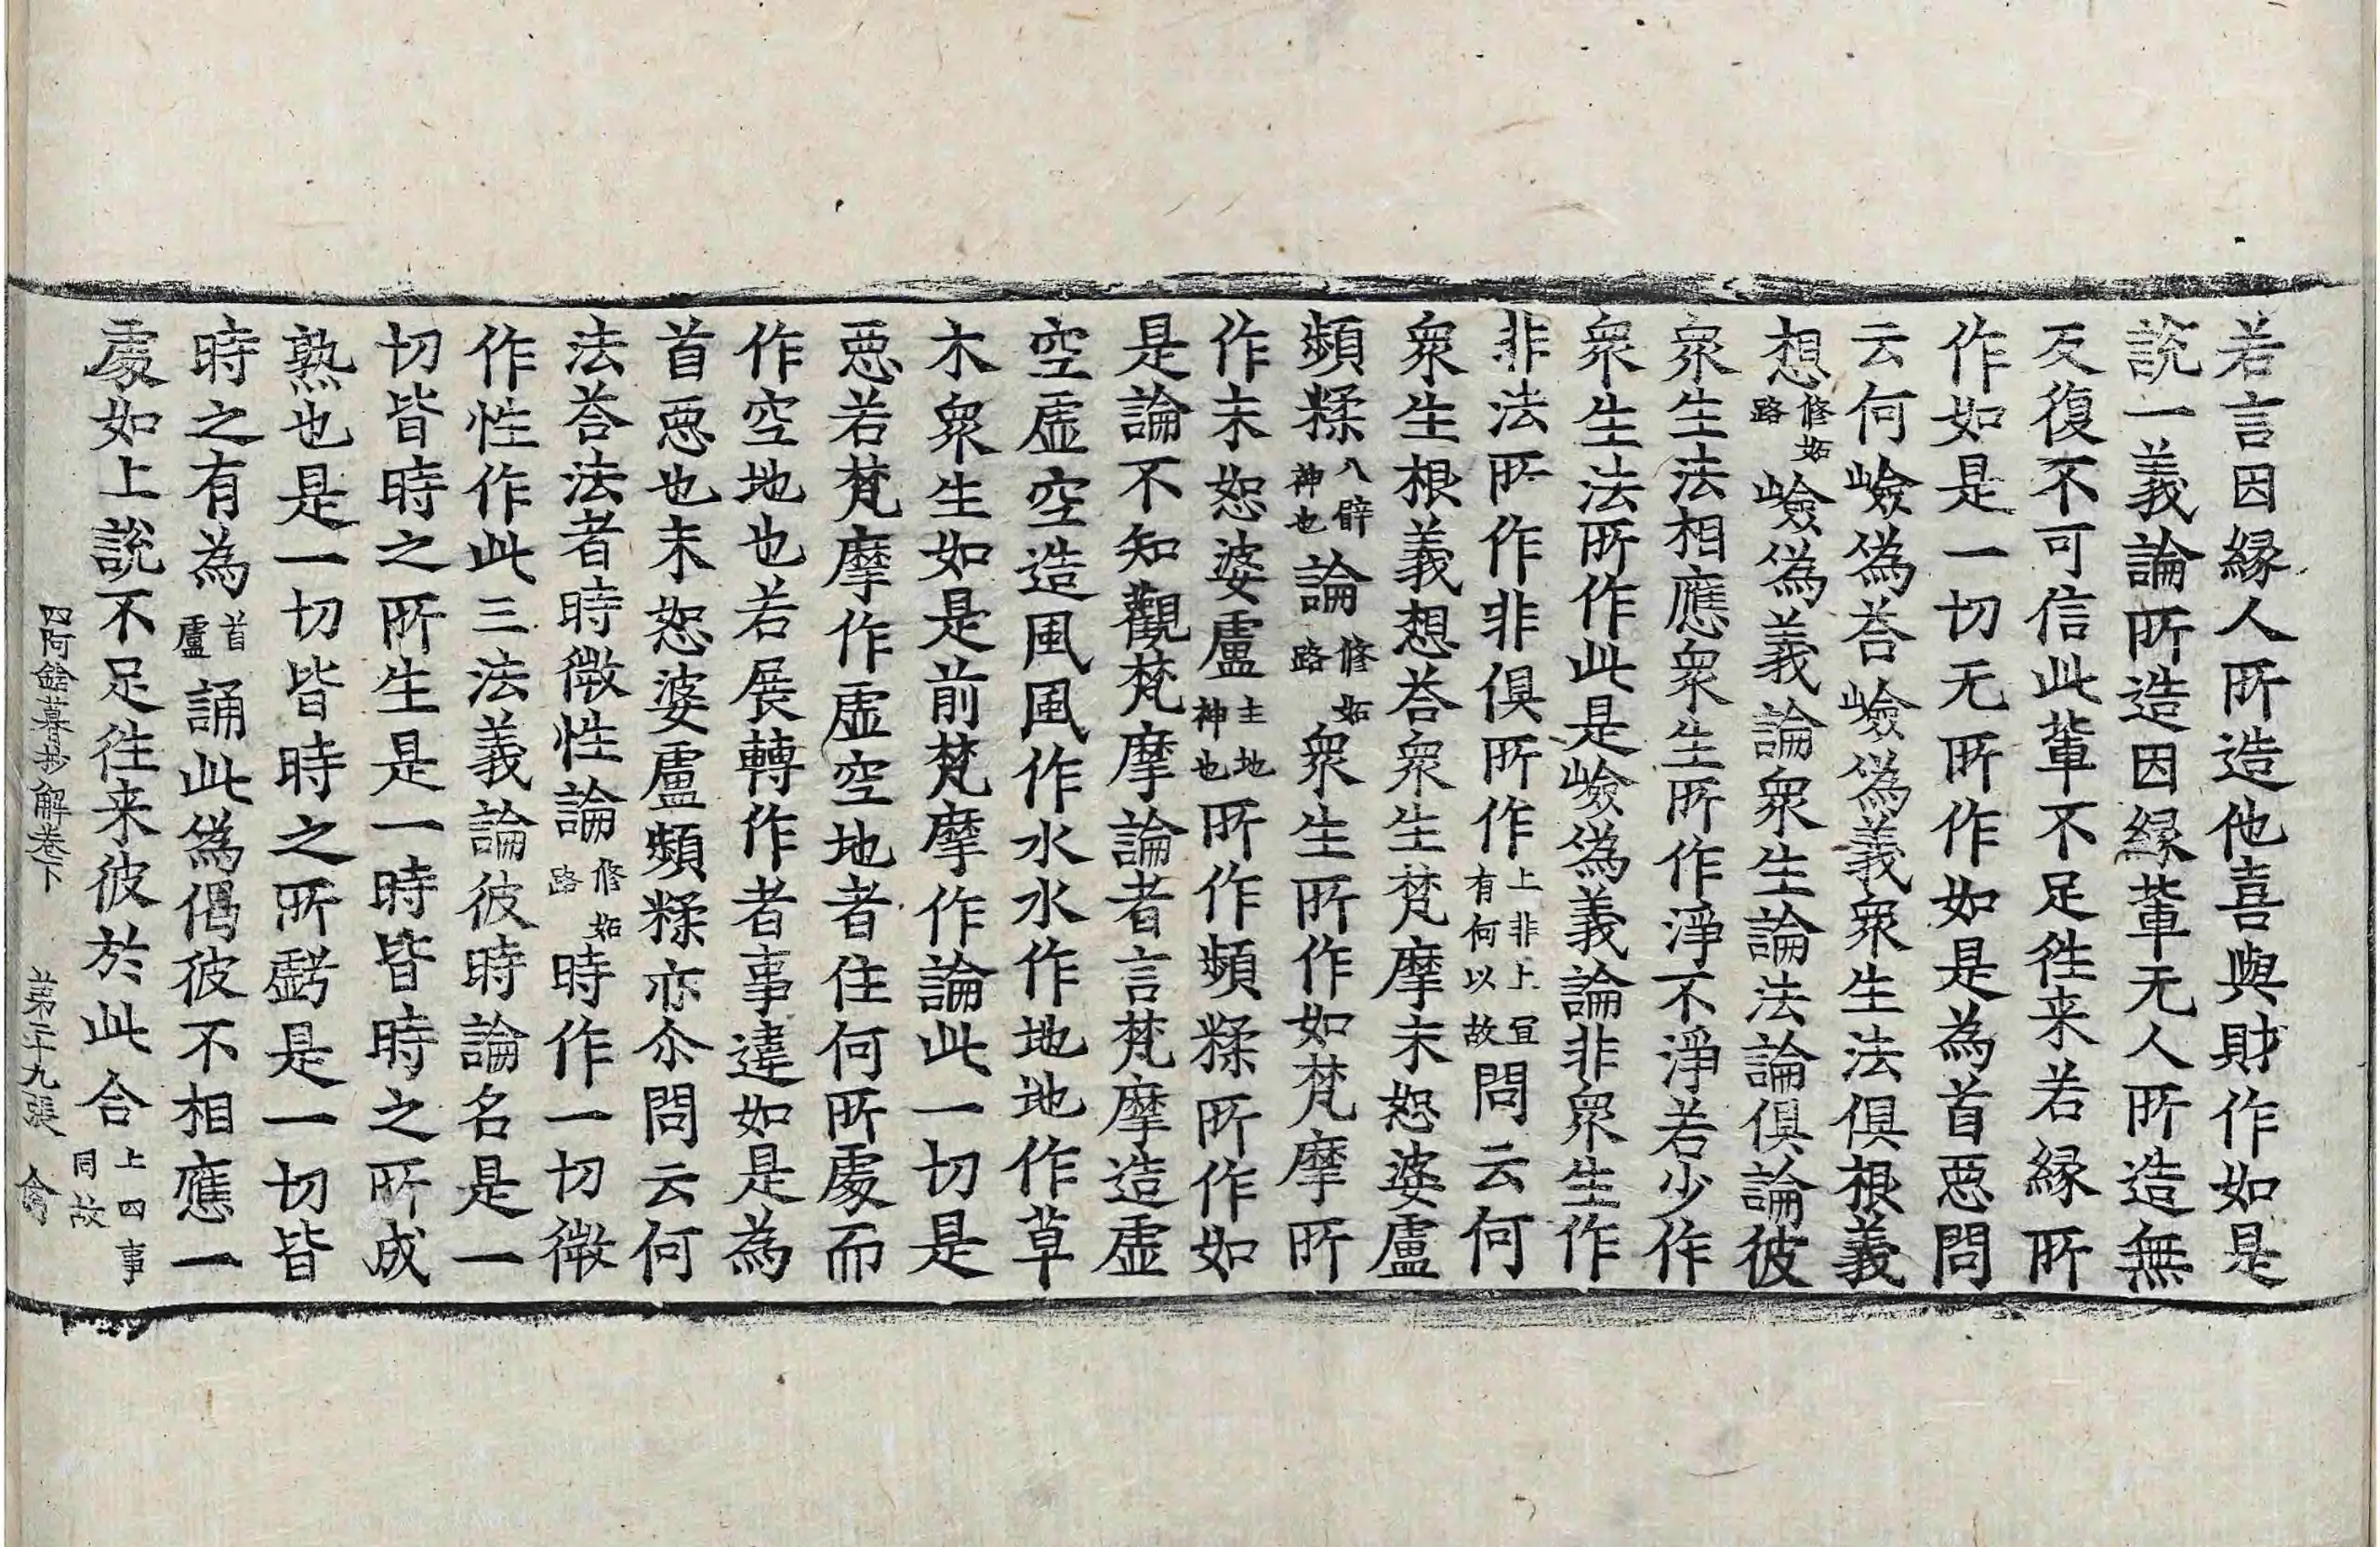 若言因縁人所造他喜與財作如是
説一義論所造因縁軰无人所造無
反復不可信此軰不足徃来若縁所
作如是一切无所作如是為首惡問
云何嶮偽荅嶮偽義衆生法俱根義
想修妬路嶮偽義論衆生論法論俱論彼
衆生法相應衆生所作淨不淨若少作
衆生法所作此是嶮偽義論非衆生作
非法所作非俱所作上非上冝有何以故問云何
衆生根義想荅衆生梵摩末恕婆盧
頻糅八臂神也論修妬路衆生所作如梵摩所
作末恕婆盧主地神也所作頻糅所作如
是論不知觀梵摩論者言梵摩造虛
空虛空造風風作水水作地地作草
木衆生如是前梵摩作論此一切是
惡若梵摩作虛空地者住何所處而
作空地也若展轉作者事違如是為
首惡也末恕婆盧頻糅亦尒問云何
法荅法者時微性論修妬路時作一切微
作性作此三法義論彼時論名是一
切皆時之所生是一時皆時之所成
熟也是一切皆時之所虧是一切皆
時之有為首盧誦此為偈彼不相應一
處如上說不足徃来彼於此合上四事同故
四阿鋡暮抄解卷下 第二十九張 㑒